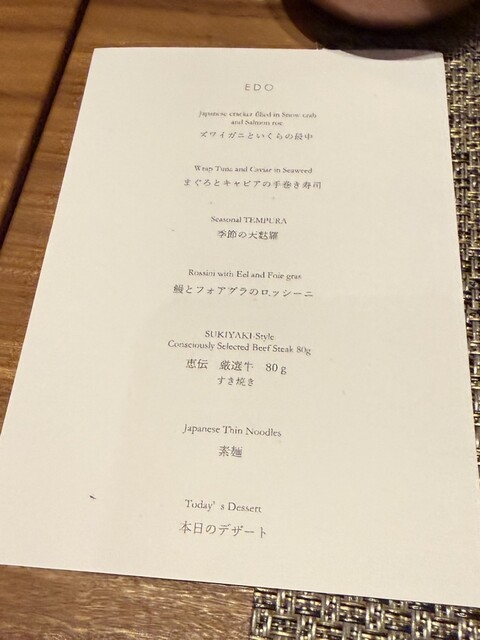 EDO
Japanese cracker filled in Snow crab
and Salmon roe
ズワイガニといくらの最中
Wrap Tuna and Caviar in Seaweed
まぐろとキャビアの手巻き寿司
Seasonal TEMPURA
季節の天麩羅
Rossini with Eel and Foie gras
鰻とフォアグラのロッシーニ
SUKIYAKI-Style
Consciously Selected Beef Steak 80g
恵伝 厳選牛 80g
すき焼き
Japanese Thin Noodles
素麺
Today's Dessert
本日のデザート